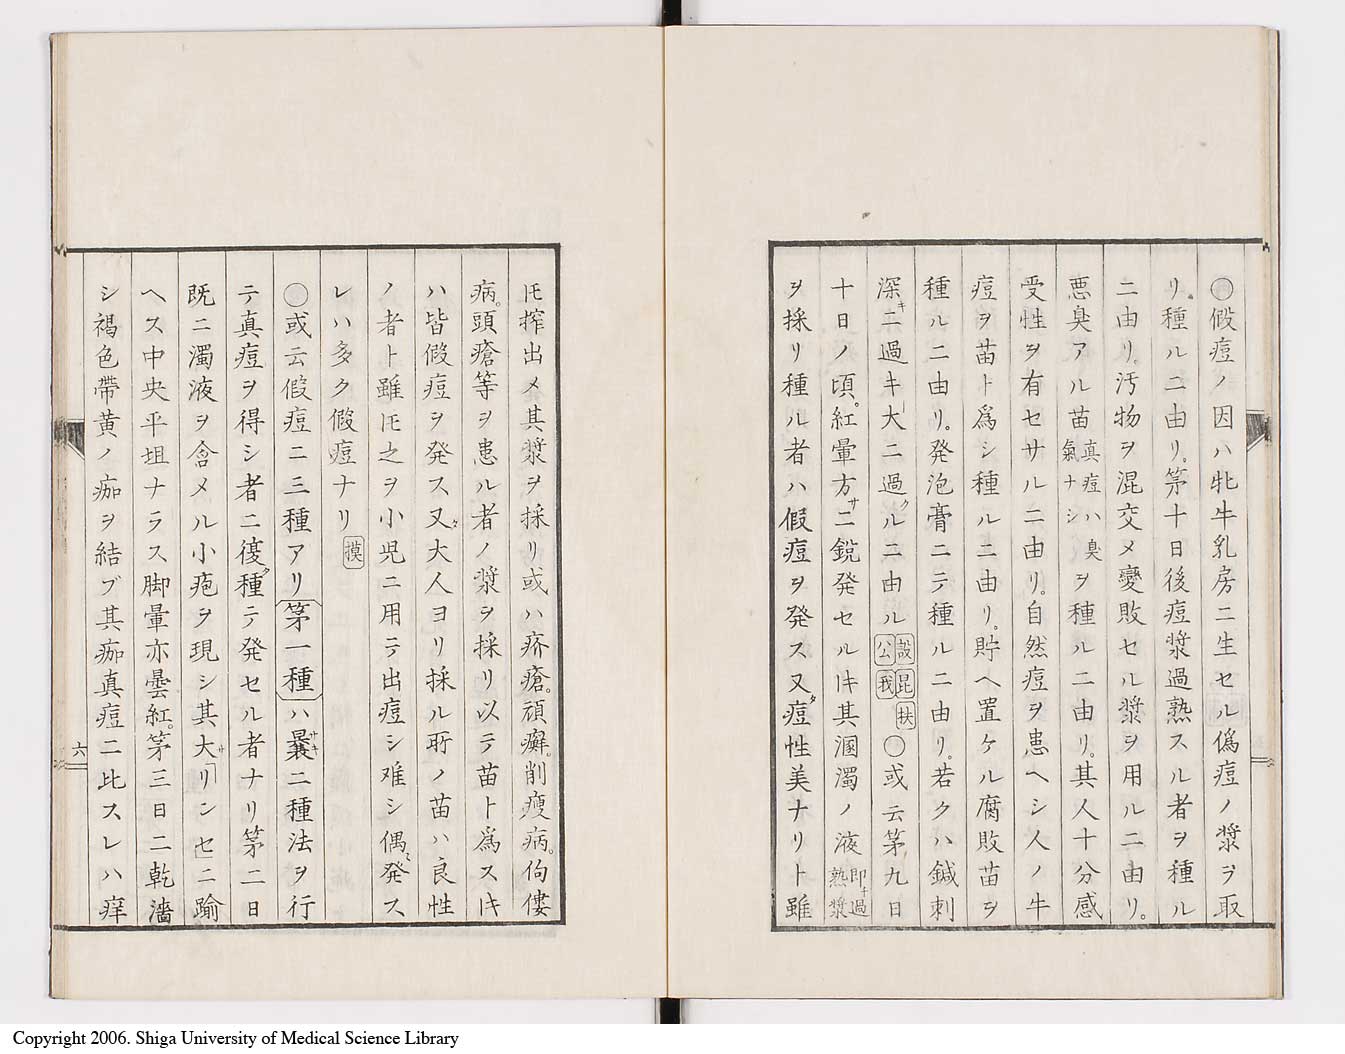 〇假痘ノ因ハ牝牛乳房ニ生セル偽痘ノ漿ヲ取
リ。種ルニ由リ。苐十日後痘漿過熟スル者ヲ種ル
ニ由リ。汚物ヲ混交メ變敗セル漿ヲ用ルニ由リ。
悪臭アル苗真痘ハ臭氣ナシヲ種ルニ由リ。其人十分感
受性ヲ有セサルニ由リ。自然痘ヲ患ヘシ人ノ牛
痘ヲ苗ト爲シ種ルニ由リ。貯ヘ置ケル腐敗苗ヲ
種ルニ由リ。発泡膏ニテ種ルニ由リ。若クハ鍼刺
深キニ過キ大ニ過クルニ由ル設公昆我扶〇或云苐九日
十日ノ頃。紅暈方サニ鋭発セルヰ其溷濁ノ液即チ過熟漿
ヲ採リ種ル者ハ假痘ヲ発ス又タ痘性美ナリト雖
𪜈搾出メ其漿ヲ採リ或ハ疥瘡。頑癬。削瘦病。佝僂
病。頭瘡等ヲ患ル者ノ漿ヲ採リ以テ苗ト爲スキ
ハ皆假痘ヲ発ス又タ大人ヨリ採ル所ノ苗ハ良性
ノ者ト雖𪜈之ヲ小児ニ用テ出痘シ难シ偶〻発ス
レハ多ク假痘ナリ摸
〇或云假痘ニ三種アリ苐一種ハ曩サキニ種法ヲ行
テ真痘ヲ得シ者ニ復タ種テ発セル者ナリ苐二日
既ニ濁液ヲ含メル小疱ヲ現シ其大サリンセニ踰
ヘス中央平坦ナラス脚暈亦曇紅。苐三日ニ乾濇
シ褐色帶黄ノ痂ヲ結ブ其痂真痘ニ比スレハ痒
六
Copyright 2006. Shiga University of Medical Science Library